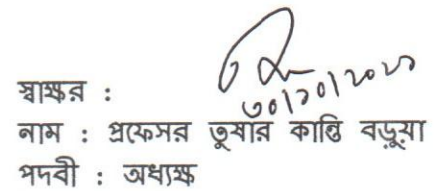 স্বাক্ষর :
৩০/১০/২০২০
নাম : প্রফেসর তুষার কান্তি বড়ুয়া
পদবী : অধ্যক্ষ